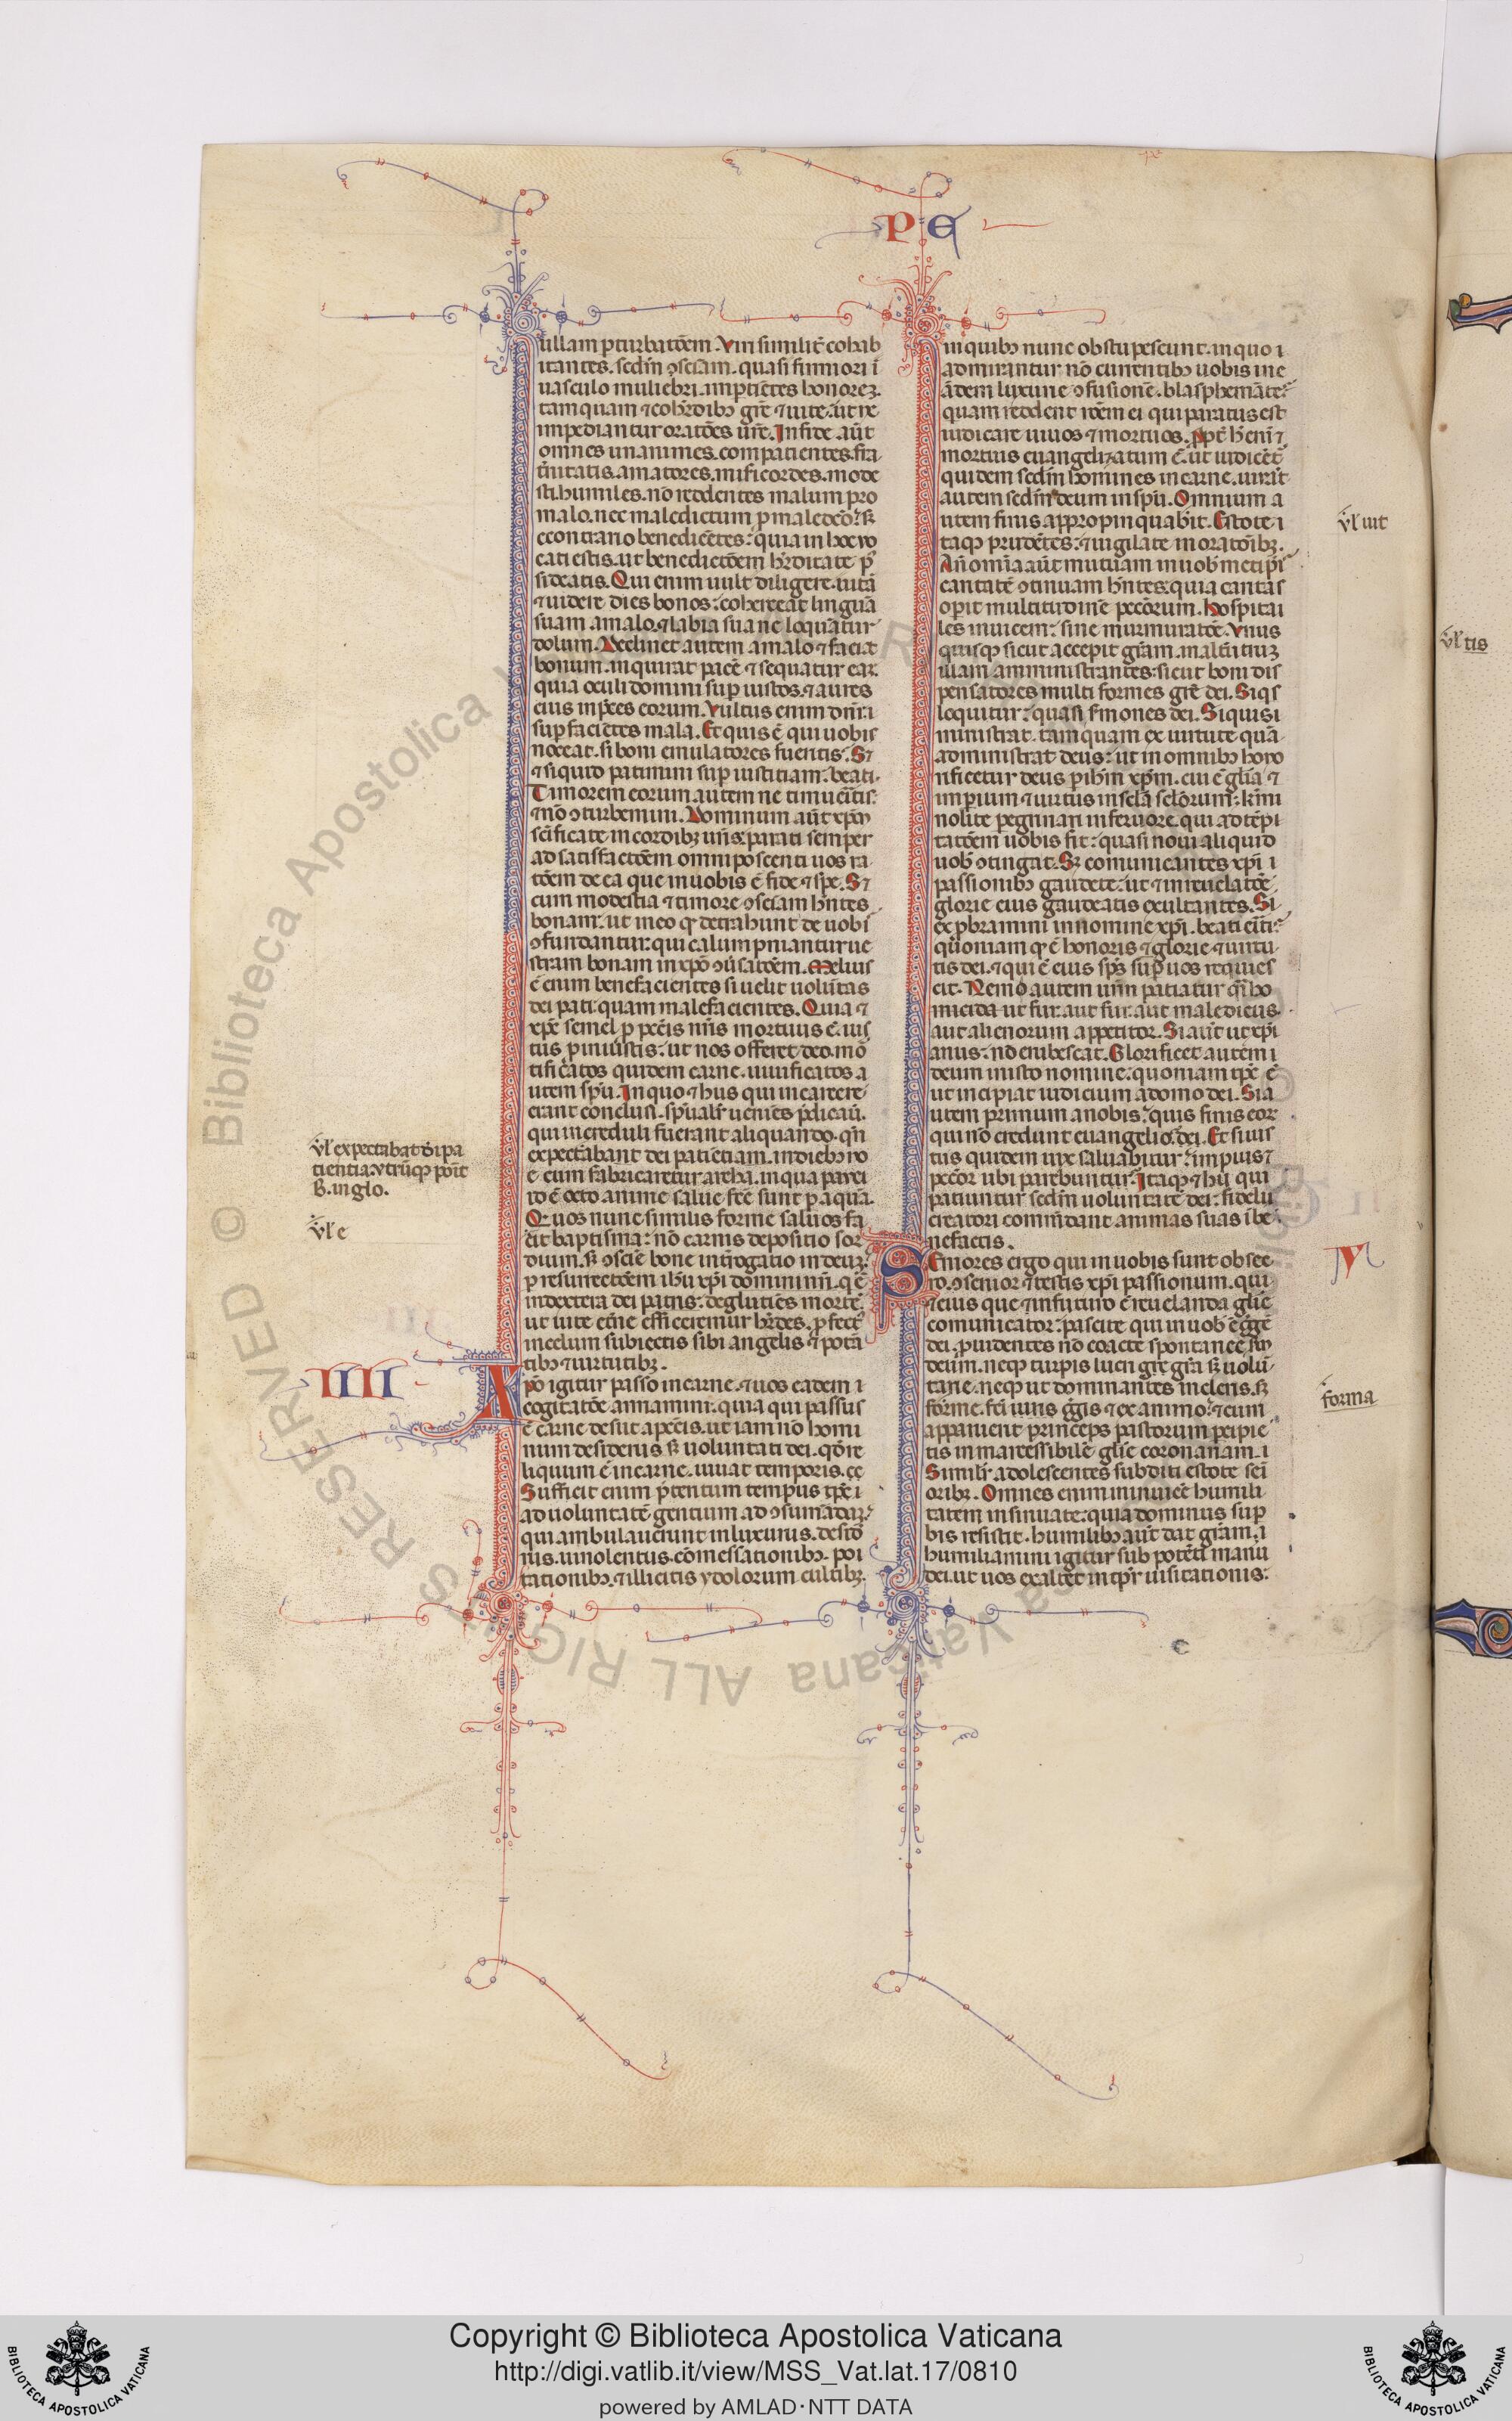 P E
ullam pturbatōem. Viri similit̄ cohab
itantes. sedm̄ ꝯsciam. quasi firmiori ī
uasculo muliebri. imptiētes honorez.
tamquam ⁊ coh̄rdibꝫ gr̄e ⁊ uite. ut ne
impediantur oratōes ur̄e. In fide aūt
omnes unanimes. compatientes. fra
t̄nitatis. amatores. mificordes. mode
sti. humiles. nō reddentes malum pro
malo. nec maledictum p maledcō. sꝫ
econtrario benedicētes. quia in hoc uo
cati estis. ut benedictōem h̄rditate pͥ
sideatis. Qui enim uult diligere. uitā
⁊ uidere dies bonos. cohereeat linguā
suam a malo. ⁊ labia sua ne loquātur
dolum. Declinet autem a malo ⁊ faciat
bonum. inquirat pacē ⁊ sequatur eaz.
quia oculi domini sup iustos. ⁊ aures
eius in p̄ces eorum. Vultus enim dn̄i. i
sup facientes mala. Et quis ē qui uobis
noceat. si boni emulatores fueritis. Sꝫ
⁊ si quid patimini sup iustitiam. beati.
Timorem eorum autem ne timueritis.
⁊ nō ꝯturbemini. Dominum aūt xp̄m
sc̄ificate in cordibꝫ ur̄is. parati semper
ad satisfactōem omni poscenti uos ra
tōem de ea que in uobis ē fide ⁊ spe. Sꝫ
cum modestia ⁊ timore ꝯsciam hn̄tes
bonam. ut in eo qͩ detrahunt de uobis
ꝯfundantur. qui calumpniantur ue
stram bonam in xp̄o ꝯuersatōem. Melius
ē enim benefacientes si uelit uolūtas
dei pati. quam malefacientes. Quia ⁊
xp̄c semel p pccīs nr̄is mortuus ē. ius
tus p iniustis. ut nos offerret deo. mō
tificatos quidem carne. uiuificatos a
utem spū. In quo ⁊ hiis qui in carcere
erant conclusi. spūalr̄ ueniēs p̄dicauī.
qui increduli fuerant aliquando. qn̄
expectabant dei patiētiam. in diebꝫ no
e. cum fabricaretur archa. in qua pauci
id ē octo anime salue fc̄e sunt p aquā.
Qͥ uos nunc similis forme saluos fa
cit baptisma. nō carnis depositio sor
dium. sꝫ ꝯscīe bone int̄rogatio in deuz.
p resurrectōem ihū xp̄i domini nr̄i. q̄ ē
in dextera dei patris. deglutiēs mortē.
ut uite et̄ne efficeremur h̄rdes. pfectꝰ
in celum subiectis sibi angelis ⁊ potā
tibꝫ ⁊ uirtutibꝫ.
IIII
Xpō igitur passo in carne. ⁊ uos eadem i
cogitatōe armamini. quia qui passus
ē carne desiit a pccīs. ut iam nō homi
num desideriis sꝫ uoluntati dei. qd̄ re
liquum ē in carne. uiuat temporis. ee
Sufficit enim p̄teritum tempus tp̄e i
ad uoluntatē gentium ad ꝯsumādaz.
qui ambulauerunt in luxuriis. desid̄
riis. uinolentiis. comessationibꝫ. poi
tationibꝫ. ⁊ illicitis ydolorum cultibꝫ.
ul̄ expectabat᷑ dī pa
tientia. utrūqꝫ poīt
B. in glo.
ul̄ e
in quibꝫ nunc obstupescunt. in quo i
admirantur nō currentibꝫ uobis in e
ādem luxurie ꝯfusionē. blasphemātes.
quam reddent rōem ei qui paratus est
iudicare uiuos ⁊ mortuos. Ppt̄ h̄ enī ⁊
mortuis euangelizatum ē. ut iudicēt᷑
quidem sedm̄ homines in carne. uiuāt
autem sedm̄ deum in spū. Omnium a
utem finis appropinquabit. Estote i
taqꝫ prudētes. ⁊ uigilate in oratōibꝫ.
An̄ omīa aūt mutuam in uobmetipīs
caritatē ꝯtinuam hn̄tes. quia caritas
opit multitudinē pccōrum. Hospitai
les inuicem. sine murmuratōe. Vnus
quisqꝫ sicut accepit gr̄am. in alt̄utruz
illam amministrantes. sicut boni dis
pensatores multiformes gr̄e dei. Siqͥs
loquitur. quasi sermones dei. Si quis i
ministrat. tamquam ex uirtute quā
administrat deus. ut in omnibꝫ hono
rificetur deus p ihm̄ xp̄m. cui ē gl̄ia ⁊
imperium ⁊ uirtus in scl̄a scl̄orum. k̄mi
nolite pegrinari in feruore. qui ad tēpi
tatōem uobis fit. quasi noui aliquid
uob ꝯtingat. Sꝫ comunicantes xp̄i i
passionibꝫ gaudete. ut ⁊ in reuelatōe
glorie eius gaudeatis exultantes. Si
expbramini in nomine xp̄i. beati eritis.
qūoniam qͩ ē honoris ⁊ glorie ⁊ uirtu
tis dei. ⁊ qui ē eius spc̄ sup uos requies
cit. Nemo autem ur̄m patiatur qͣi ho
micida. ut fur. aut fur. aut maledicus.
aut alienorum appetitor. Si aūt ut xp̄i
anus. nō erubescat. Glorificet autem i
deum in isto nomine. quoniam tp̄c ē
ut incipiat iudicium a domo dei. Si a
utem primum a nobis. quis finis eor
qui nō credunt euangelio dei. Et si ius
tus quidem uix saluabitur. impius ⁊
pccōr ubi parebunt. Itaqꝫ ⁊ hii qui
patiuntur sedm̄ uoluntatē dei. fideli
creatori commēdant animas suas i be
nefactis.
V
Seniores ergo qui in uobis sunt obsec
ro. ꝯsenior ⁊ testis xp̄i passionum. qui
⁊ eius que ⁊ in futuro ē reuelanda glīe
comunicator. pascite qui in uob ē gr̄ge
dei. puidentes nō coacte. spontanee sm̄
deum. neqꝫ turpis lucri gr̄e gr̄a. sꝫ uolū
tarie. neqꝫ ut dominantes in cleris. sꝫ
forme. fcī uīus gr̄gis ⁊ ex animo. ⁊ cum
apparuerit princeps pastorum. pcipie
tis inmarcessibilē glīe coronam. i
Similr̄ adolescentes subditi estote seni
oribꝫ. Omnes enim inuicē humili
tatem insinuate. quia dominus sup
bis resistit. humilibꝫ aūt dat gr̄am. i
humiliamini igitur sub potēti manu
dei. ut uos exaltet in tp̄r uisitationis.
ul̄ uit
forma
ul̄ tis
Copyright © Biblioteca Apostolica Vaticana
http://digi.vatlib.it/view/MSS_Vat.lat.17/0810
powered by AMLAD · NTT DATA
BIBLIOTECA APOSTOLICA VATICANA
BIBLIOTECA APOSTOLICA VATICANA
© Biblioteca Apostolica Vaticana ALL RIGHTS RESERVED